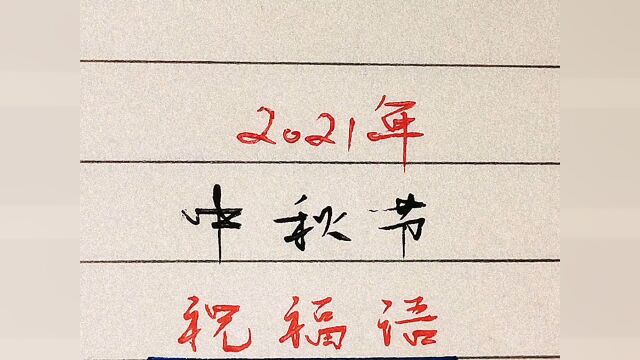 2021年
中秋节
祝福语